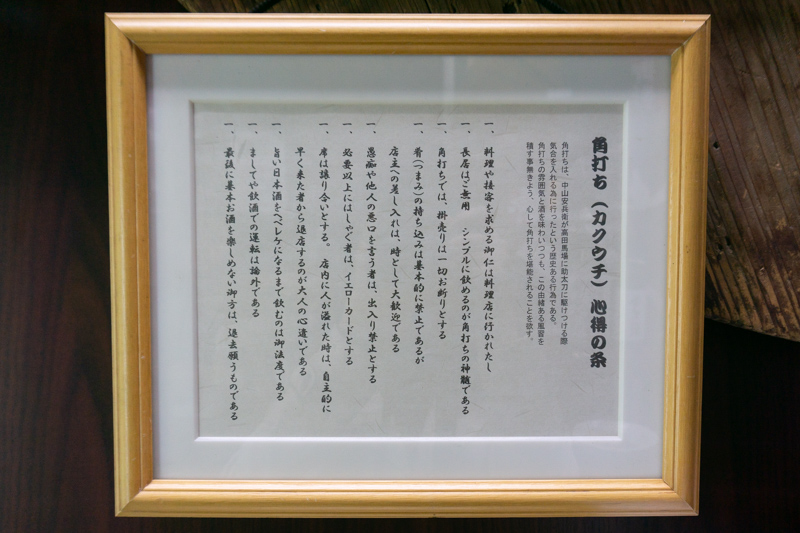 角打ち（カクウチ）心得の条
角打ちは、中山安兵衛が高田馬場に助太刀に駆けつける際
気合を入れる為に行ったという歴史ある行為である。
角打ちの雰囲気と酒を味わいつつも、この由緒ある風習を
穢す事無きよう、心して角打ちを堪能されることを欲す。
一、料理や接客を求める御仁は料理店に行かれたし
一、長居はご無用　シンプルに飲めるのが角打ちの神髄である
一、角打ちでは、掛売りは一切お断りとする
一、肴（つまみ）の持ち込みは基本的に禁止であるが
店主への差し入れは、時として大歓迎である
一、愚痴や他人の悪口を言う者は、出入り禁止とする
一、必要以上にはしゃぐ者は、イエローカードとする
一、席は譲り合いとする。店内に人が溢れた時は、自主的に
早く来た者から退店するのが大人の心遣いである
一、旨い日本酒をヘベレケになるまで飲むのは御法度である
一、ましてや飲酒での運転は論外である
一、最後に基本お酒を楽しめない御方は、退去願うものである